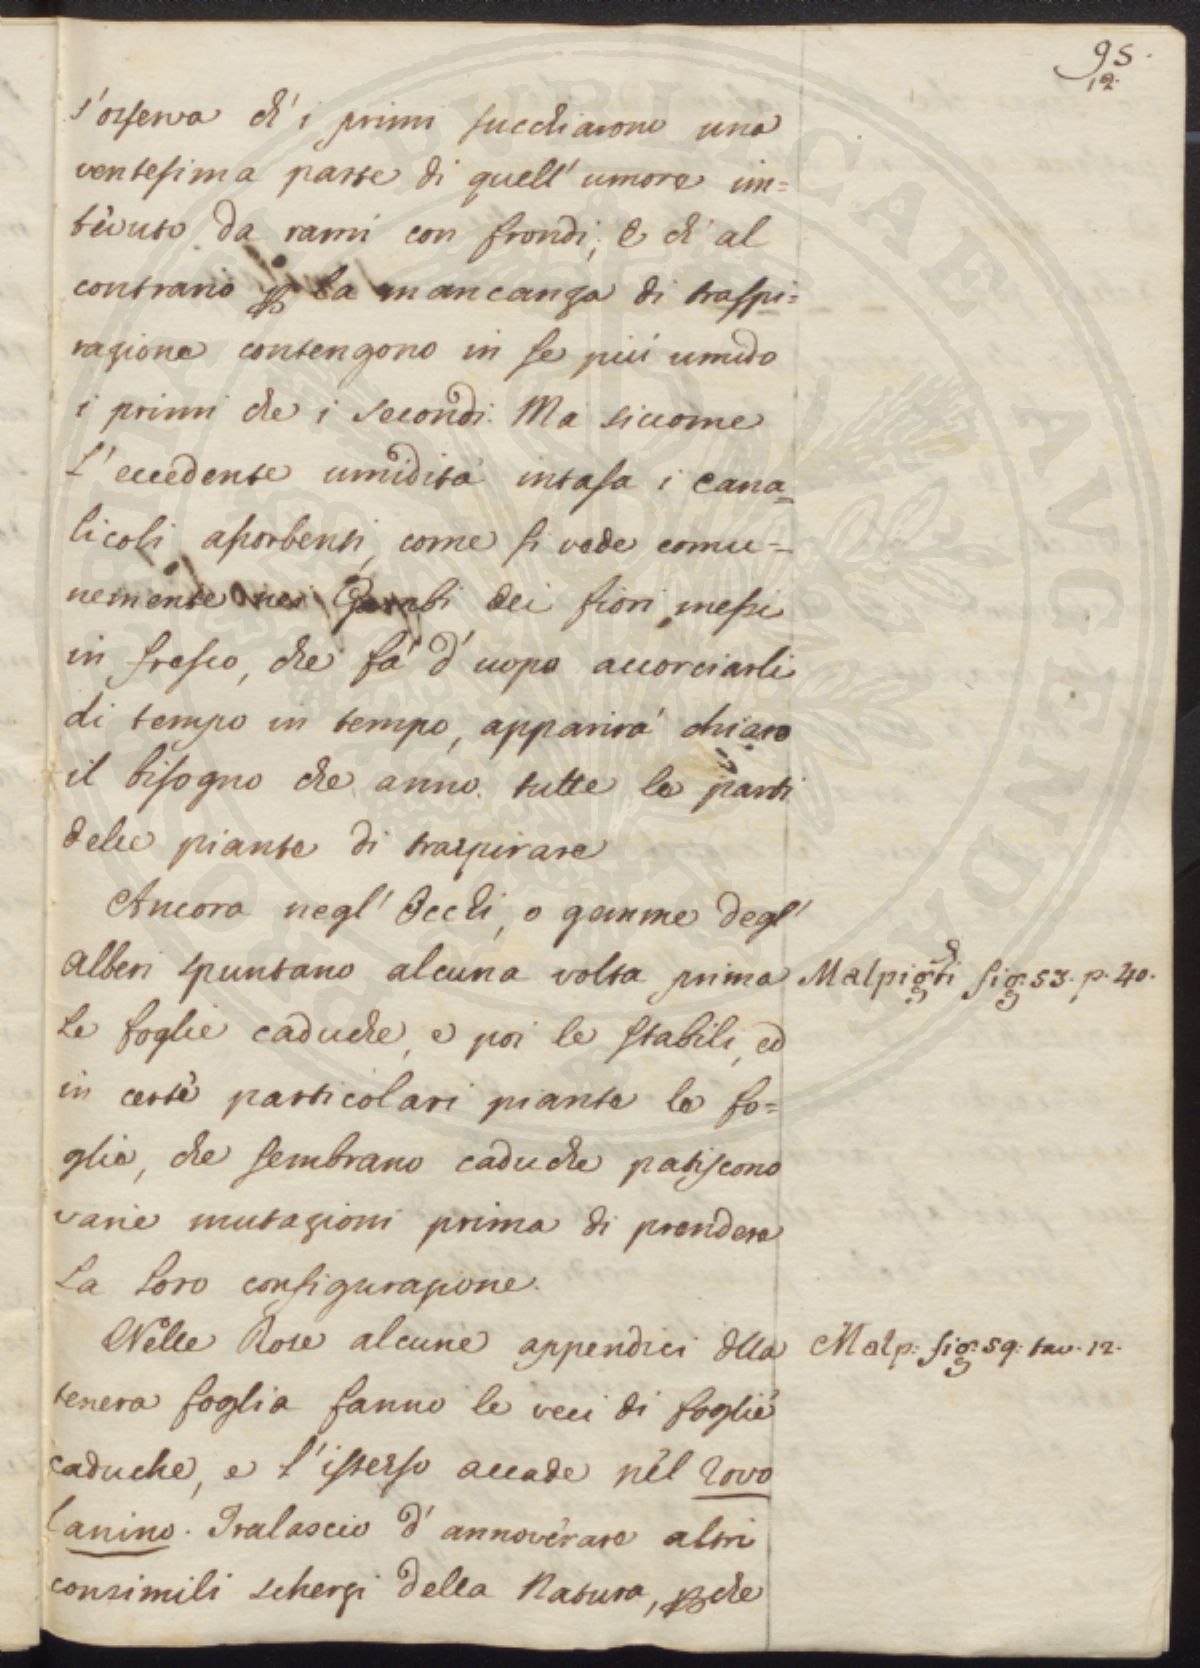 95.
12.
s'osserva ch' i primi succhiarono una
ventesima parte di quell' umore im=
bevuto da rami con frondi; e ch' al
contrario p la mancanza di traspi=
razione contengono in se più umido
i primi che i secondi. Ma siccome
l'eccedente umidità intasa i cana=
licoli assorbenti, come si vede comu=
nemente nei Gambi dei fiori messi
in fresco, che fà d'uopo accorciarli
di tempo in tempo, apparirà chiaro
il bisogno che anno tutte le parti
delle piante di traspirare
Ancora negl' Occhi, o gemme degl'
Alberi spuntano alcuna volta prima
le foglie caduche, e poi le stabili, ed
in certe particolari piante le fo=
glie, che sembrano caduche patiscono
varie mutazioni prima di prendere
la loro configurazione.
Nelle Rose alcune appendici dlla
tenera foglia fanno le veci di foglie
caduche, e l'istesso accade nel Rovo
Canino. Tralascio d'annoverare altri
consimili scherzi della Natura, pche
Malpighi fig: 53. p. 40.
Malp: fig: 59: tav. 12.